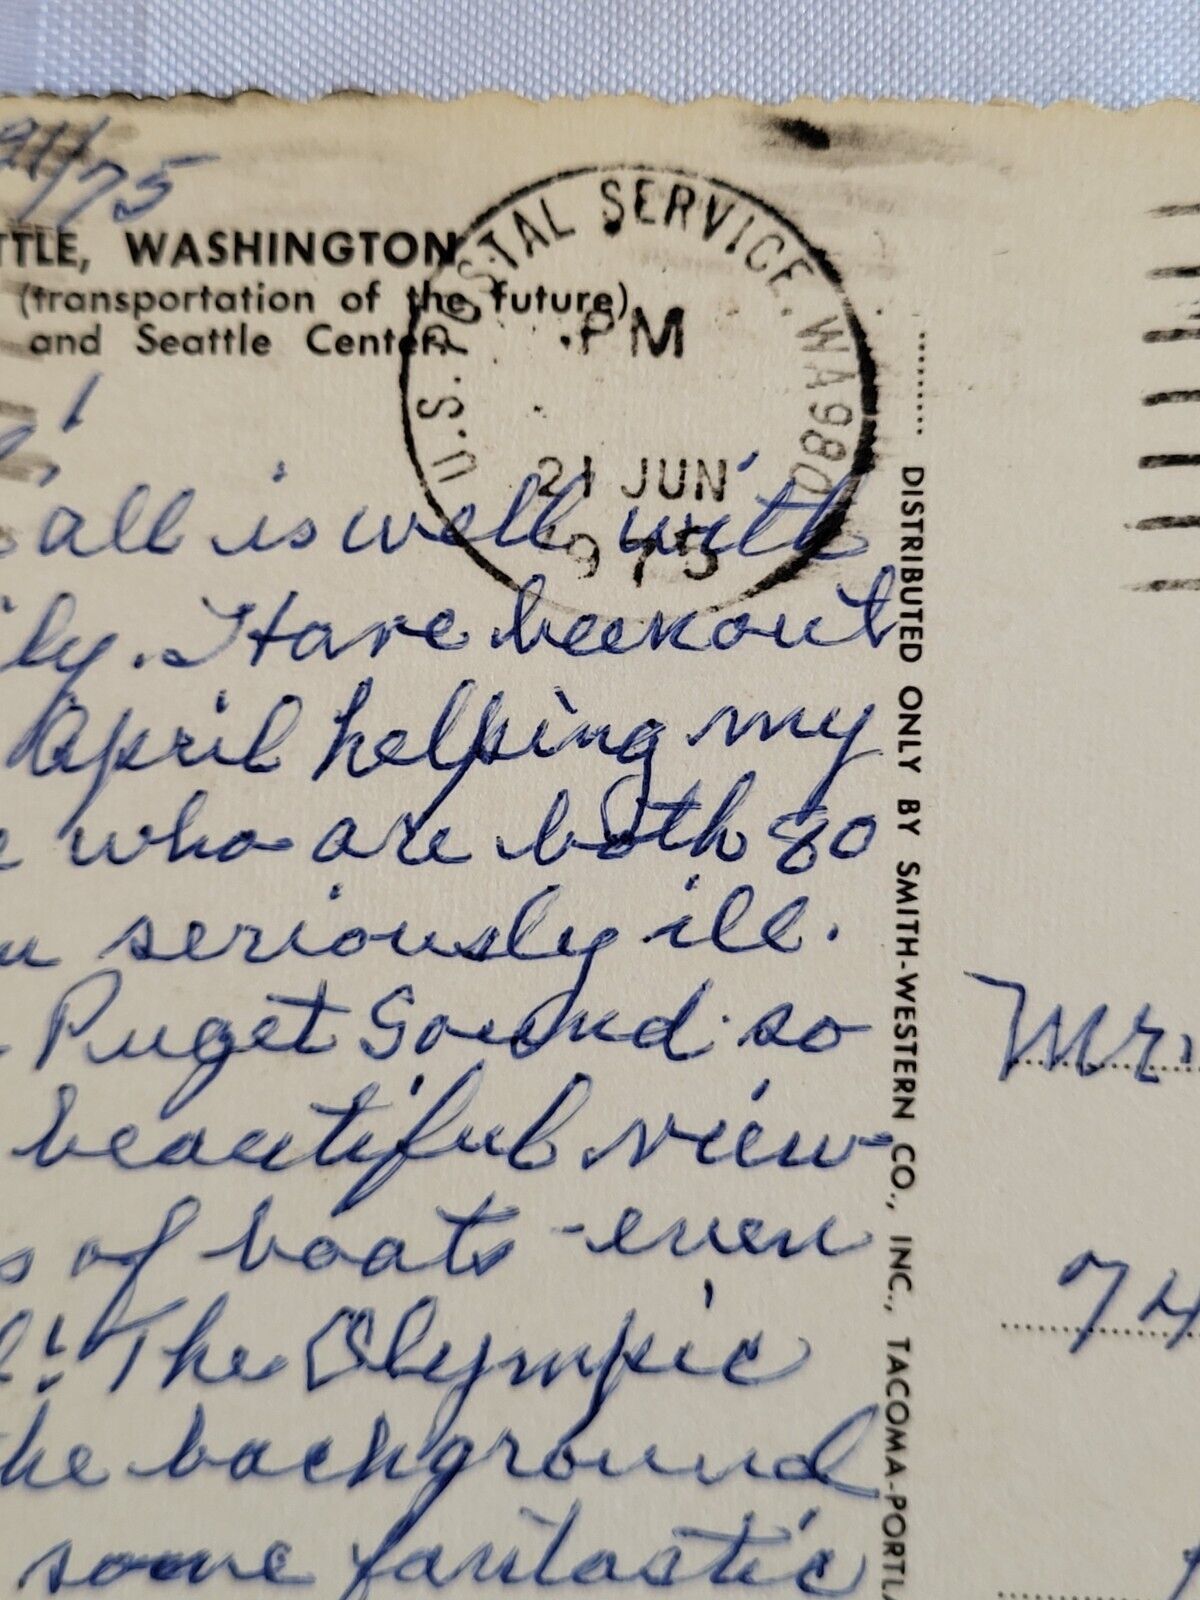 21/75
TTLE, WASHINGTON
(transportation of the future)
and Seattle Center.
U.S. POSTAL SERVICE. WA980
PM
21 JUN
1975
all is well with
ily. Have been out
April helping my
who are both 80
seriously ill.
Puget Sound so
beautiful view-
s of boats - even
! The Olympic
he background
some fantastic
DISTRIBUTED ONLY BY SMITH-WESTERN CO., INC., TACOMA-PORTLA
Mr.
74